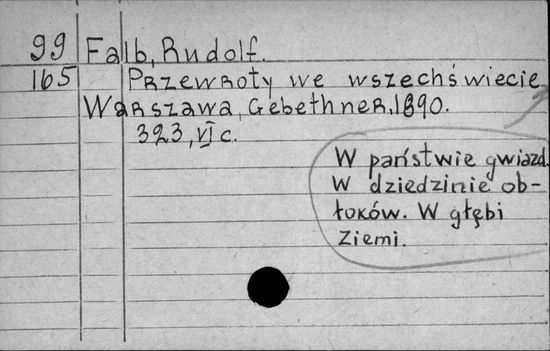 99 Falb, Rudolf.
165 Przewroty we wszechświecie
Warszawa, Gebethner, 1890.
323, VI c.
W państwie gwiazd.
W dziedzinie ob-
łoków. W głębi
Ziemi.